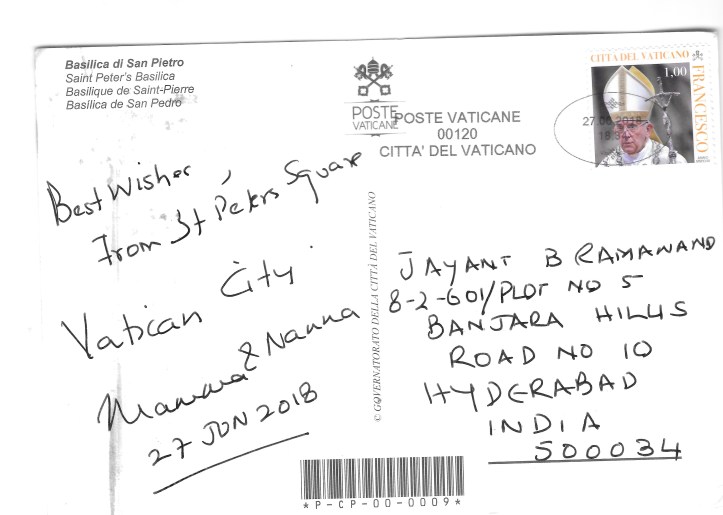 Basilica di San Pietro
Saint Peter's Basilica
Basilique de Saint-Pierre
Basílica de San Pedro
POSTE
VATICANE
POSTE VATICANE
00120
CITTA' DEL VATICANO
CITTÀ DEL VATICANO
1,00
FRANCESCO
27.06.2018
Best Wishes
From St Peters Square
Vatican City
Mamma & Nanna
27 JUN 2018
© GOVERNATORATO DELLA CITTÀ DEL VATICANO
JAYANT B RAMANAND
8-2-601/PLOT NO 5
BANJARA HILLS
ROAD NO 10
HYDERABAD
INDIA
500034
*P-CP-00-0009*